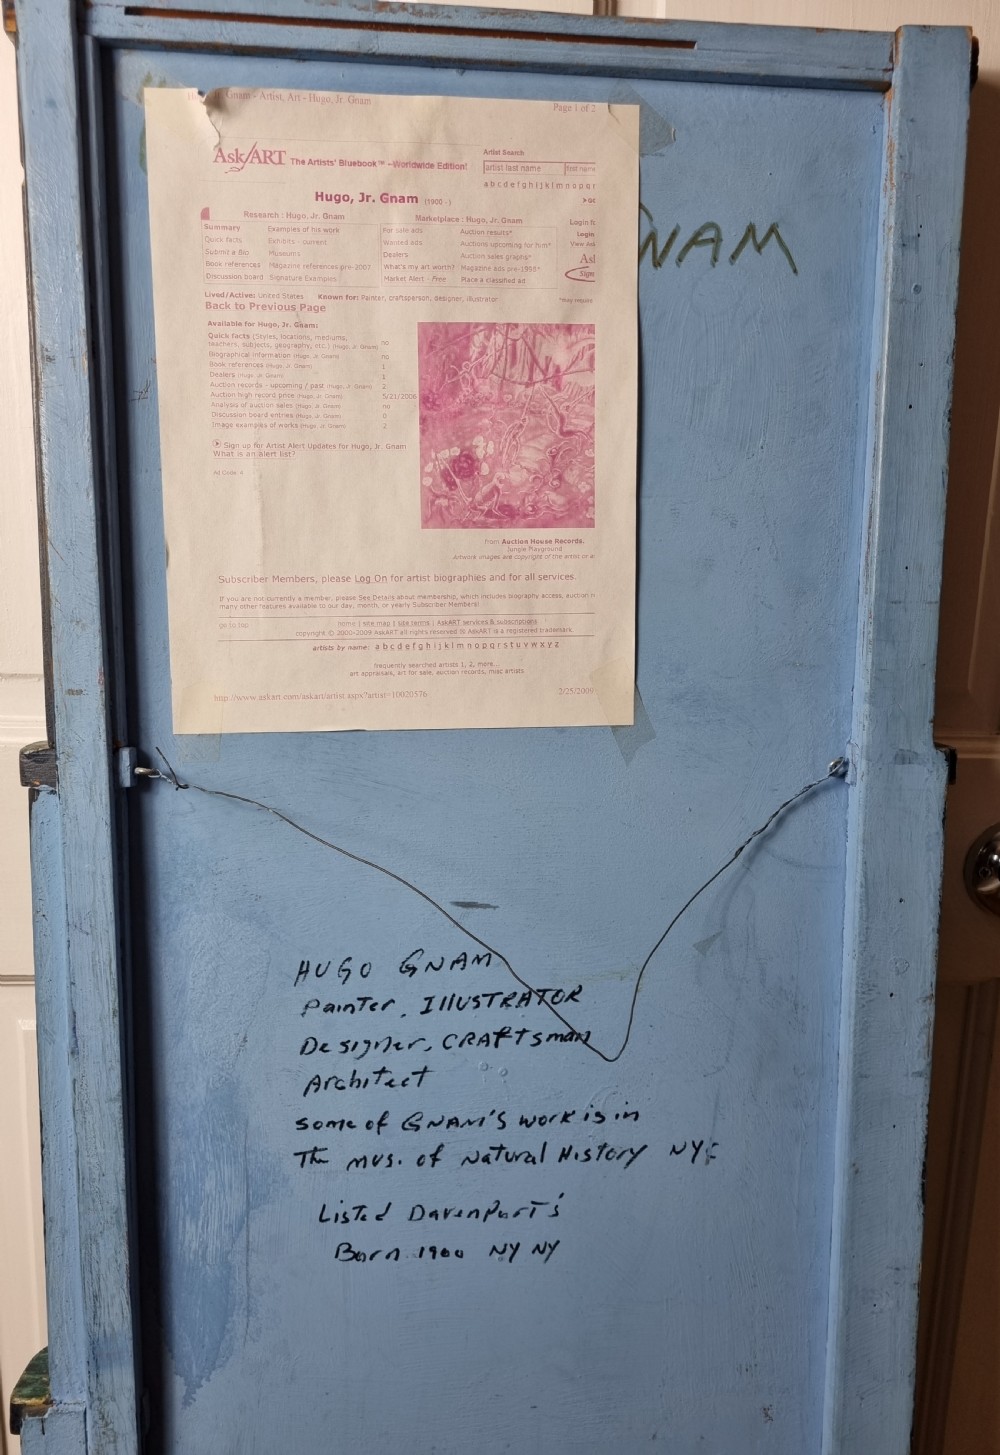 Gnam - Artist, Art - Hugo, Jr. Gnam
Page 1 of 2
AskART The Artists' Bluebook™ –Worldwide Edition!
Artist Search
artist last name
first name
a b c d e f g h i j k l m n o p q r
Hugo, Jr. Gnam (1900 - )
Research : Hugo, Jr. Gnam
Summary Examples of his work
Quick facts Exhibits - current
Submit a Bio Museums
Book references Magazine references pre-2007
Discussion board Signature Examples
Marketplace : Hugo, Jr. Gnam
For sale ads Auction results*
Wanted ads Auctions upcoming for him*
Dealers Auction sales graphs*
What's my art worth? Magazine ads pre-1998*
Market Alert - Free Place a classified ad
Login
View
Sign
Lived/Active: United States Known for: Painter, craftsperson, designer, illustrator
Back to Previous Page
Available for Hugo, Jr. Gnam:
Quick facts (Styles, locations, mediums,
teachers, subjects, geography, etc.) (Hugo, Jr. Gnam) no
Biographical information (Hugo, Jr. Gnam) no
Book references (Hugo, Jr. Gnam) 1
Dealers (Hugo, Jr. Gnam) 1
Auction records - upcoming / past (Hugo, Jr. Gnam) 2
Auction high record price (Hugo, Jr. Gnam) 5/21/2006
Analysis of auction sales (Hugo, Jr. Gnam) no
Discussion board entries (Hugo, Jr. Gnam) 0
Image examples of works (Hugo, Jr. Gnam) 2
Sign up for Artist Alert Updates for Hugo, Jr. Gnam
What is an alert list?
Ad Code: 4
from Auction House Records.
Jungle Playground
Artwork images are copyright of the artist or a
Subscriber Members, please Log On for artist biographies and for all services.
If you are not currently a member, please See Details about membership, which includes biography access, auction
many other features available to our day, month, or yearly Subscriber Members!
go to top
home | site map | site terms | AskART services & subscriptions
copyright © 2000-2009 AskART all rights reserved ® AskART is a registered trademark.
artists by name: a b c d e f g h i j k l m n o p q r s t u v w x y z
frequently searched artists 1, 2, more...
art appraisals, art for sale, auction records, misc artists
http://www.askart.com/askart/artist.aspx?artist=10020576
2/25/2009
GNAM
HUGO GNAM
Painter, ILLUSTRATOR
Designer, CRAFTSman
Architect
some of GNAM'S work is in
The mus. of Natural History NYC
Listed Davenport's
Born 1900 NY NY